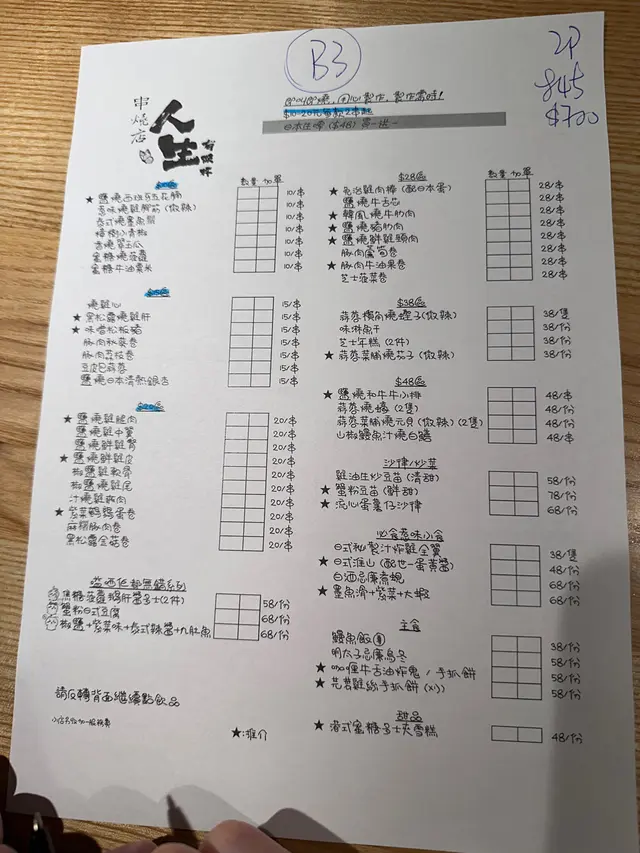 B3
2P
845
$700
串燒店
人生有幾杯
即叫即燒,用心製作,製作需時!
$10-20元每款2串起
日本生啤 ($48) 買一送一
數量 加單
$10區
★ 鹽燒西班牙五花腩 10/串
惹味燒雞腎芯 (微辣) 10/串
泰式燒墨魚鬚 10/串
10/串
香燒翠玉瓜 10/串
蜜糖燒菠蘿 10/串
蜜糖牛油粟米 10/串
$15區
燒雞心 15/串
★ 黑松露燒雞肝 15/串
★ 味噌松板豬 15/串
豚肉秋葵卷 15/串
豚肉荔枝卷 15/串
豆皮巴蒜蓉 15/串
鹽燒日本清熱銀杏 15/串
$20區
★ 鹽燒雞腿肉 20/串
鹽燒雞中翼 20/串
鹽燒鮮雞腎 20/串
★ 鹽燒雞皮 20/串
椒鹽雞軟骨 20/串
椒鹽燒雞尾 20/串
汁燒雞肉 20/串
★ 紫菜鵪鶉蛋卷 20/串
麻糬豚肉卷 20/串
黑松露金菇卷 20/串
無錫系列
焦糖菠蘿鵝肝醬多士(2件) 58/份
蟹粉日式豆腐 68/份
椒鹽+紫菜味+泰式辣醬+九肚魚 68/份
請反轉背面繼續點飲品
小店另收加一服務費
★:推介
數量 加單
$28區
★ 免治雞肉棒 (配日本蛋) 28/串
鹽燒牛舌芯 28/串
★ 韓風燒牛肋肉 28/串
★ 鹽燒豬肋肉 28/串
★ 鹽燒鮮雞頸肉 28/串
豚肉露筍卷 28/串
★ 豚肉牛油果卷 28/串
芝士菠菜卷 28/串
$38區
蒜蓉欖角燒蟶子(微辣) 38/隻
味淋魚干 38/份
芝士年糕 (2件) 38/份
★ 蒜蓉菜脯燒茄子 (微辣) 38/份
$48區
★ 鹽燒和牛牛小排 48/串
蒜蓉燒蠔 (2隻) 48/份
蒜蓉菜脯燒元貝 (微辣) (2隻) 48/份
山椒鰻魚汁燒白鱔 48/串
沙律/炒菜
雞油生炒豆苗 (清甜) 58/份
★ 蟹粉豆苗 (鮮甜) 78/份
★ 流心蛋薯仔沙律 68/份
必食惹味小食
日式秘製汁炸雞全翼 38/隻
★ 日式淮山 (配世一蛋黃醬) 48/份
白酒忌廉煮蜆 68/份
★ 墨魚滑+紫菜+大蝦 68/份
主食
鰻魚飯 38/份
明太子忌廉烏冬 58/份
★ 咖喱牛舌油炸鬼 / 手抓餅 58/份
★ 芫荽雞絲手抓餅 58/份
甜品
★ 港式蜜糖多士夾雪糕 48/份